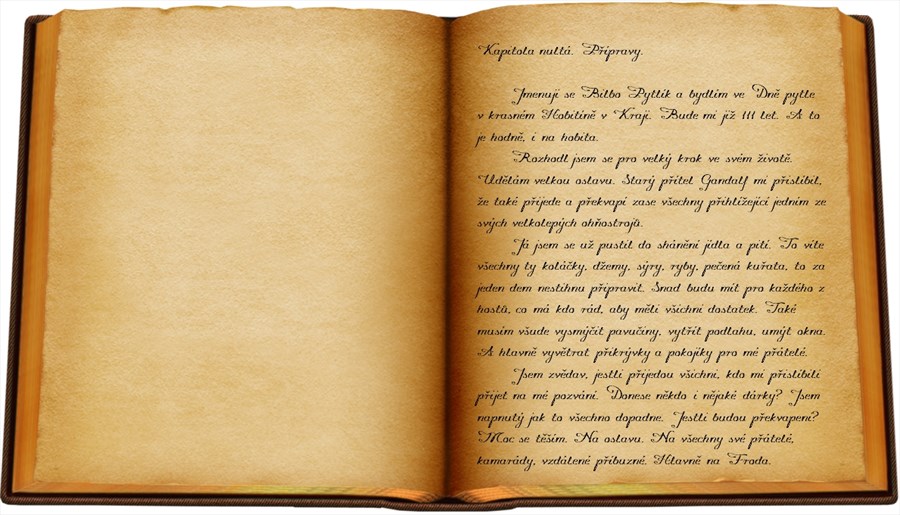 Kapitola nultá. Přípravy.
Jmenuji se Bilbo Pytlík a bydlím ve Dně pytle
v krasném Hobitíně v Kraji. Bude mi již 111 let. A to
je hodně, i na hobita.
Rozhodl jsem se pro velký krok ve svém životě.
Udělám velkou oslavu. Starý přítel Gandalf mi přislíbil,
že také přijede a překvapí zase všechny přihlížející jedním ze
svých velkolepých ohňostrojů.
Já jsem se už pustil do shánění jídla a pití. To víte
všechny ty koláčky, džemy, sýry, ryby, pečená kuřata, to za
jeden dem nestihnu připravit. Snad budu mít pro každého z
hostů, co má kdo rád, aby měli všichni dostatek. Také
musím všude vysmýčit pavučiny, vytřít podlahu, umýt okna.
A hlavně vyvětrat přikrývky a pokojíky pro mé přátelé.
Jsem zvědav, jestli přijedou všichni, kdo mi přislíbili
přijet na mé pozvání. Donese někdo i nějaké dárky? Jsem
napnutý jak to všechno dopadne. Jestli budou překvapeni?
Moc se těším. Na oslavu. Na všechny své přátelé,
kamarády, vzdálené příbuzné. Hlavně na Froda.